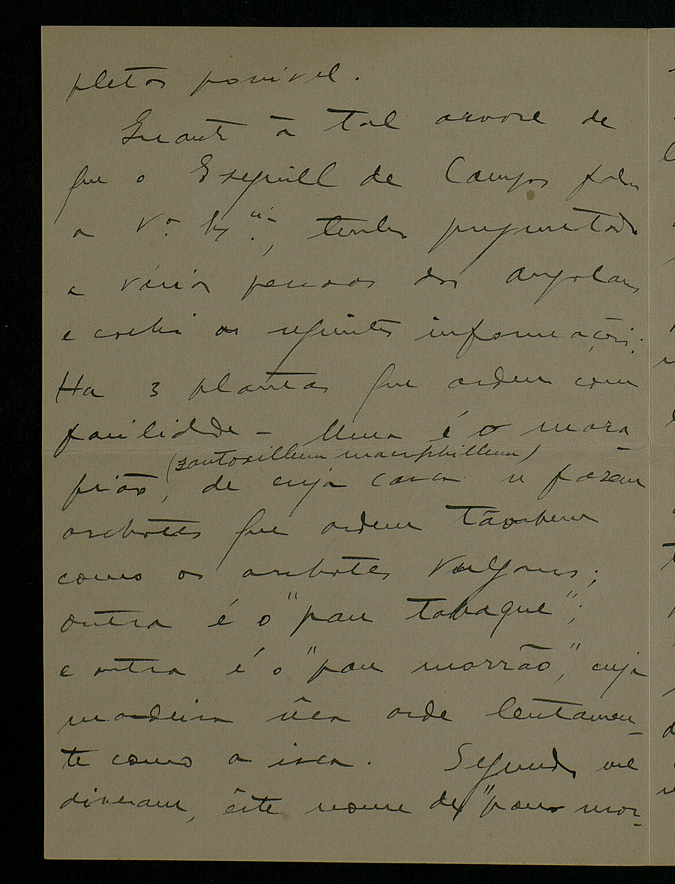 pletos possivel.
Quanto á tal arvore de
que o Ezequiel de Campos falou
a V.ª Ex.ª, tenho preguntado
a várias pessoas dos angolares
e colhi as seguintes informações:
Ha 3 plantas que ardem com
facilidade – Uma é o mara
pião, (zantoxillum macrophillum) de cuja casca se fazem
archotes que ardem tão bem
como os archotes vulgares;
outra é o "pau tabaque";
e outra é o "pau morrão," cuja
madeira sêca arde lentamen-
te como a isca. Segundo me
disseram, êste nome de "pau mor-